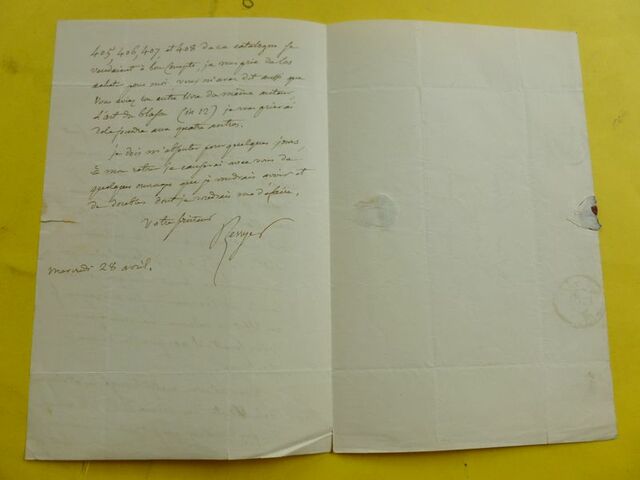 405, 406, 407, et 408 de ce catalogue se
vendaient à bon compte, je vous prie de les
acheter pour moi. vous m'avez dit aussi que
vous aviez un autre livre du même auteur
L'art du blason (in 12) je vous prierai
de le joindre aux quatre autres.
je dois m'absenter pour quelques jours,
à mon retour je causerai avec vous de
quelques ouvrages que je voudrais avoir et
de doubles dont je voudrais me défaire.
Votre serviteur
Berryer
mercredi 28 avril.